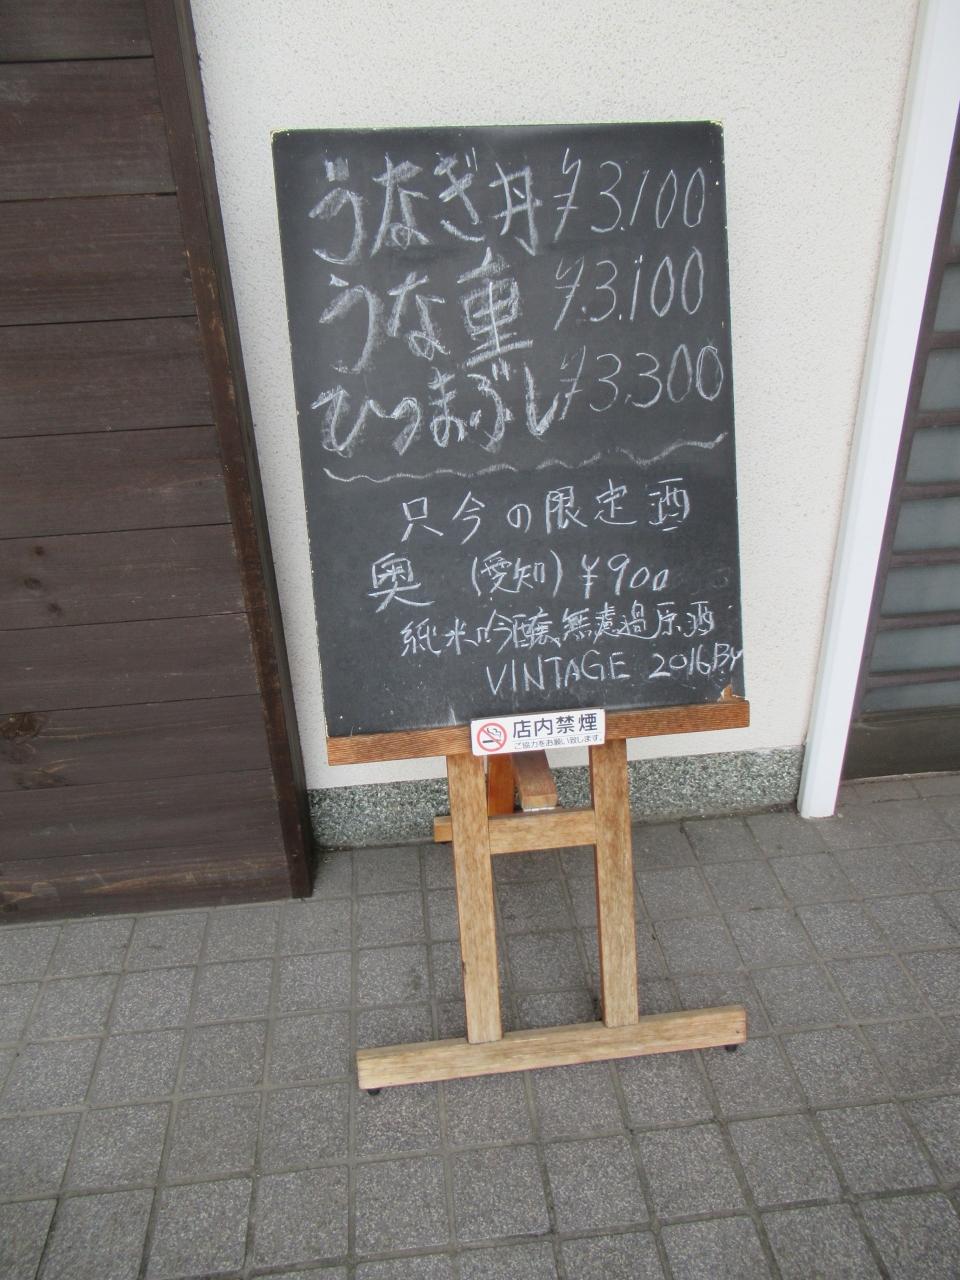 うなぎ丼 ¥3,100
うな重 ¥3,100
ひつまぶし ¥3,300
只今の限定酒
奥 (愛知) ¥900
純米吟醸無濾過原酒
VINTAGE 2016BY
店内禁煙
ご協力をお願い致します。